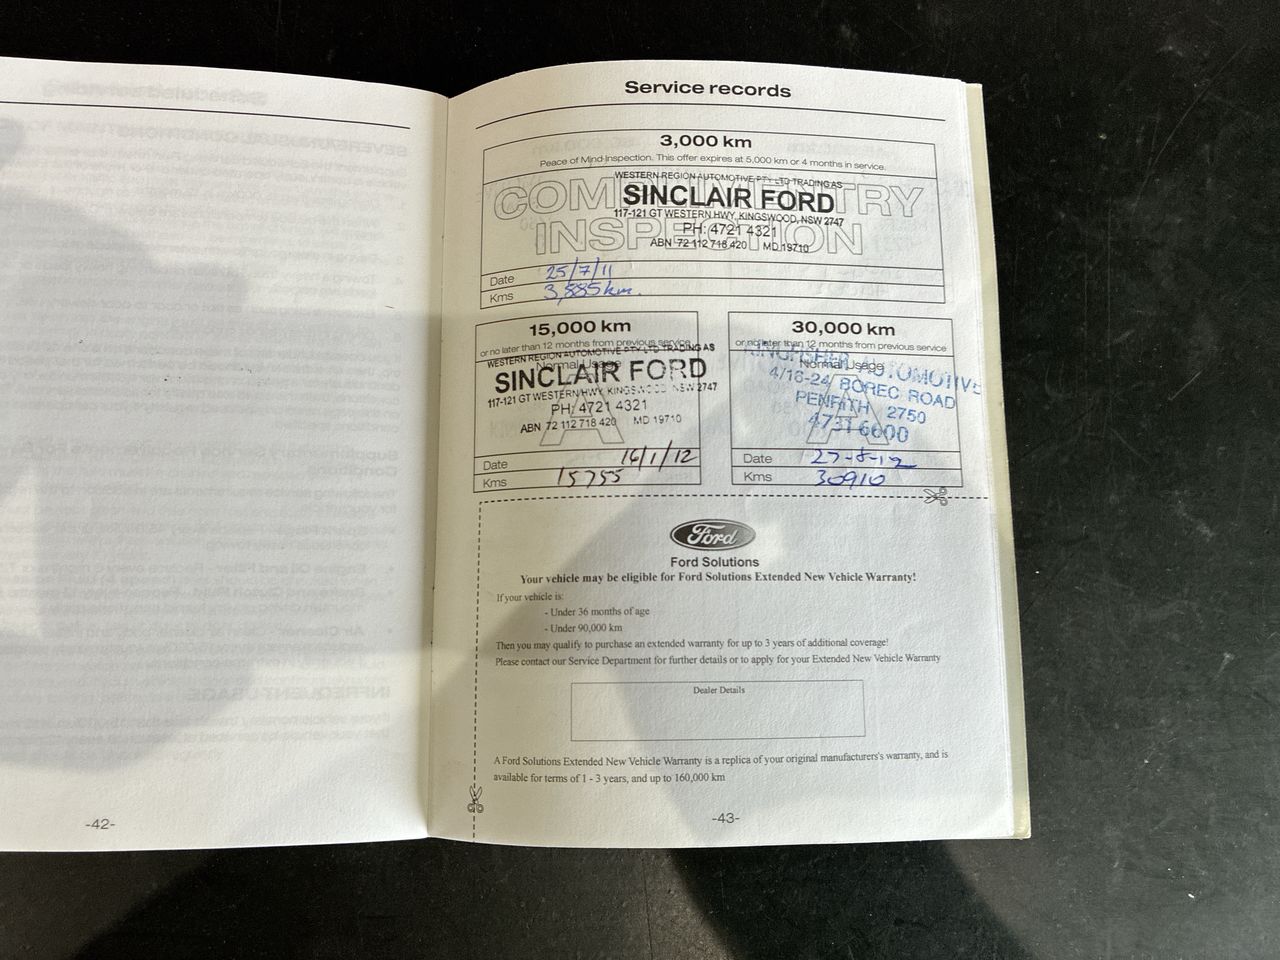 Service records
3,000 km
Peace of Mind Inspection. This offer expires at 5,000 km or 4 months in service.
WESTERN REGION AUTOMOTIVE PTY LTD TRADING AS
COMPLIMENTRY
SINCLAIR FORD
117-121 GT WESTERN HWY, KINGSWOOD, NSW 2747
INSPECTION
PH: 4721 4321
ABN 72 112 718 420 MD 19710
Date 25/7/11
Kms 3,885km.
15,000 km
or no later than 12 months from previous service
WESTERN REGION AUTOMOTIVE PTY LTD TRADING AS
Normal Usage
SINCLAIR FORD
117-121 GT WESTERN HWY, KINGSWOOD NSW 2747
A
PH: 4721 4321
ABN 72 112 718 420 MD 19710
Date 16/1/12
Kms 15755
30,000 km
or no later than 12 months from previous service
KINGFISHER AUTOMOTIVE
Normal Usage
4/18-24 BOREC ROAD
A
PENRITH 2750
4731 6600
Date 27-8-12
Kms 30910
Ford
Ford Solutions
Your vehicle may be eligible for Ford Solutions Extended New Vehicle Warranty!
If your vehicle is:
- Under 36 months of age
- Under 90,000 km
Then you may qualify to purchase an extended warranty for up to 3 years of additional coverage!
Please contact our Service Department for further details or to apply for your Extended New Vehicle Warranty
Dealer Details
A Ford Solutions Extended New Vehicle Warranty is a replica of your original manufacturers's warranty, and is
available for terms of 1 - 3 years, and up to 160,000 km
-42-
-43-